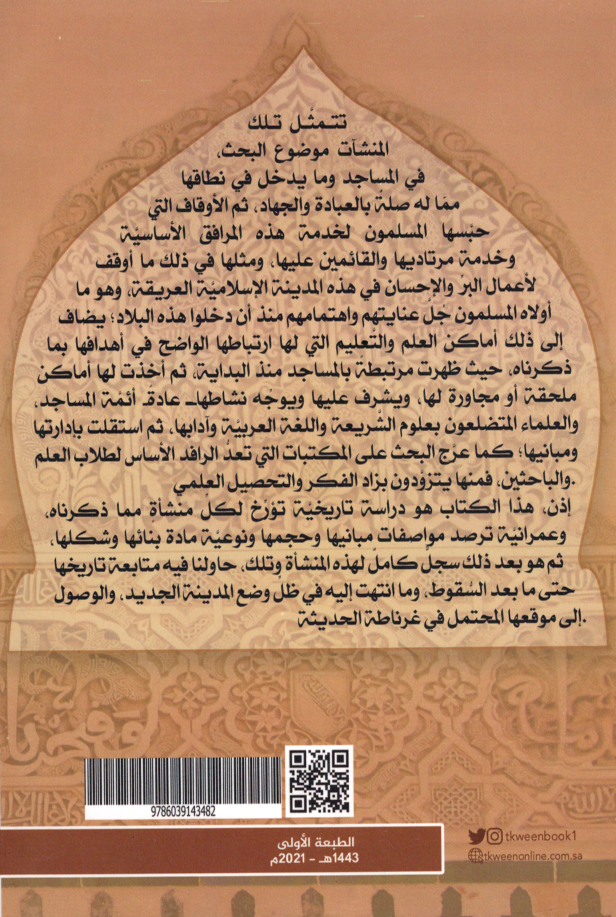 تتمثّل تلك
المنشآت موضوع البحث،
في المساجد وما يدخل في نطاقها
ممّا له صلةٌ بالعبادة والجهاد، ثم الأوقاف التي
حبّسها المسلمون لخدمة هذه المرافق الأساسيّة
وخدمة مرتاديها والقائمين عليها، ومثلها في ذلك ما أوقف
لأعمال البرّ والإحسان في هذه المدينة الإسلاميّة العريقة، وهو ما
أولاه المسلمون جُلّ عنايتهم واهتمامهم منذ أن دخلوا هذه البلاد؛ يضاف
إلى ذلك أماكن العلم والتعليم التي لها ارتباطها الواضح في أهدافها بما
ذكرناه، حيث ظهرت مرتبطة بالمساجد منذ البداية، ثم أخذت لها أماكن
ملحقة أو مجاورة لها، ويشرف عليها ويوجّه نشاطهاـ عادةـ أئمّة المساجد،
والعلماء المتضلعون بعلوم الشّريعة واللغة العربيّة وآدابها، ثم استقلت بإدارتها
ومبانيها؛ كما عرّج البحث على المكتبات التي تعدّ الرافد الأساس لطلاب العلم
.والباحثين، فمنها يتزوّدون بزاد الفكر والتحصيل العلمي
إذن، هذا الكتاب هو دراسة تاريخيّة تؤرّخ لكلّ منشأةٍ مما ذكرناه،
وعمرانيّة ترصد مواصفات مبانيها وحجمها ونوعيّة مادة بنائها وشكلها،
ثم هو بعد ذلك سجلٌ كاملٌ لهذه المنشأة وتلك، حاولنا فيه متابعة تاريخها
حتى ما بعد السّقوط، وما انتهت إليه في ظل وضع المدينة الجديد، والوصول
.إلى موقعها المحتمل في غرناطة الحديثة
9786039143482
الطبعة الأولى
1443هـ - 2021م
tkweenbook1
tkweenonline.com.sa